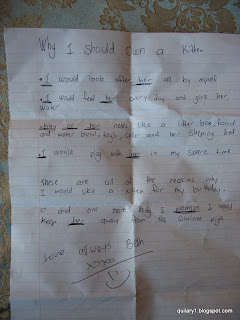 Why I should own a kitten
• I would look after her all by myself
• I would feed her everyday and give her
water
• buy all her needs like a litter box, food
and water bowl, toys, collar and her sleeping bed
• I would play with her in my spare time
These are all of the reasons why
I would like a kitten for my birthday.
and one more thing I promise I would
keep her away from the guinea pigs
Love always Beth
xoxoxo
quilary1.blogspot.com